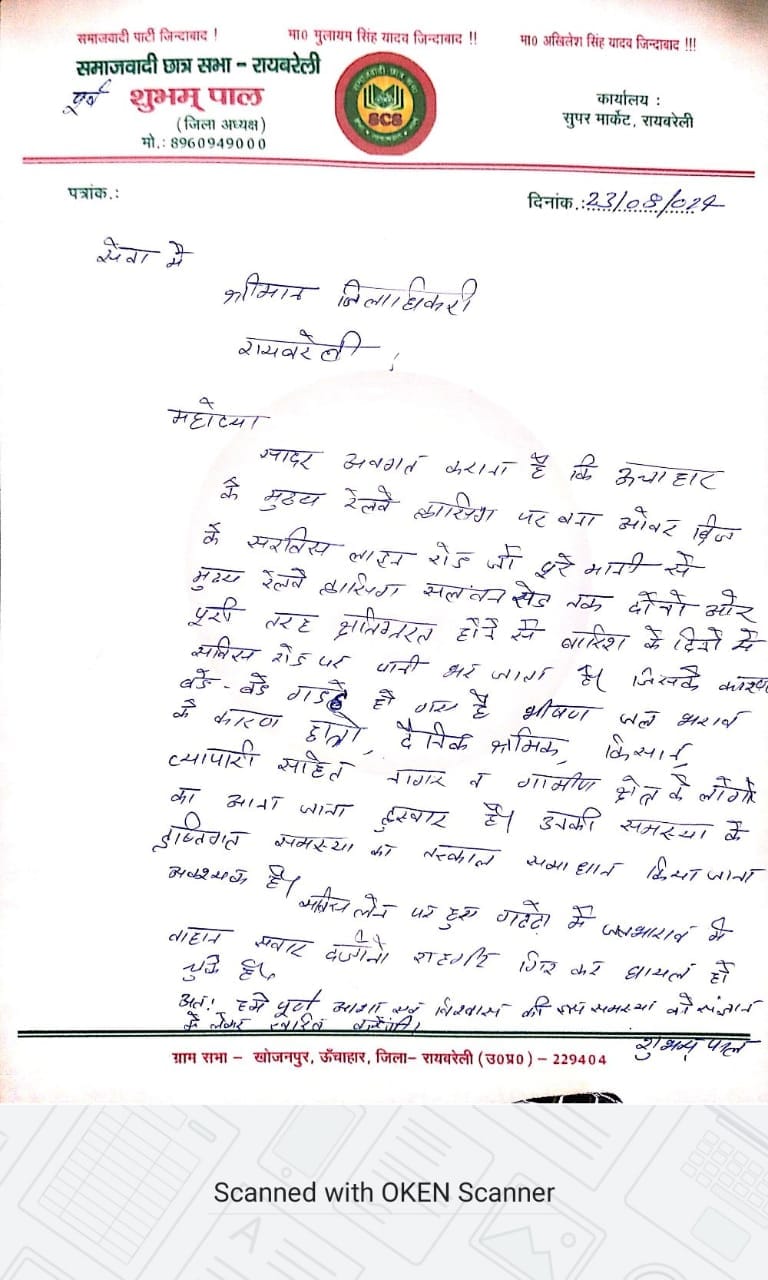 समाजवादी पार्टी जिन्दाबाद ! मा0 मुलायम सिंह यादव जिन्दाबाद !! मा0 अखिलेश सिंह यादव जिन्दाबाद !!!
समाजवादी छात्र सभा - रायबरेली
पूर्व शुभम् पाल
(जिला अध्यक्ष)
मो.: 8960949000
SCS
कार्यालय :
सुपर मार्केट, रायबरेली
पत्रांक.:
दिनांक.: 23/08/024
सेवा मे
श्रीमान जिलाधिकरी
रायबरेली
महोदया
सादर अवगत कराना है कि ऊचाहार
के मुख्य रेलवे क्रासिंग पर बना ओवर ब्रिज
के सरविस लाइन रोड जो पूरे भानी से
मुख्य रेलवे क्रासिंग सलंवन रोड तक दोनो ओर
पूरी तरह क्षतिग्रस्त होने से बारिश के दिनो मे
सर्विस रोड पर पानी भर जाता है। जिसके कारण
बडे-बडे गडढे हो गए है भीषण जल भराव
के कारण छात्रो, दैनिक श्रमिक, किसान,
व्यापारी सहित नागर व ग्रामीण क्षेत्र के लोगो
का आना जाना दुस्वार है। उनकी समस्या के
दृष्टिगत समस्या का तत्काल समाधान किया जाना
अवश्यक है।
सर्विस लेन पर हुए गडढो मे जलभाराव मे
वाहान सवार दर्जानो राहगीर गिर कर घायल हो
चुके है।
अतः हमे पूर्ण आशा एवं विश्वास की इस समस्या को संज्ञान
मे लेकर त्वरित
शुभम् पाल
ग्राम सभा - खोजनपुर, ऊँचाहार, जिला- रायबरेली (उ0प्र0) - 229404
Scanned with OKEN Scanner